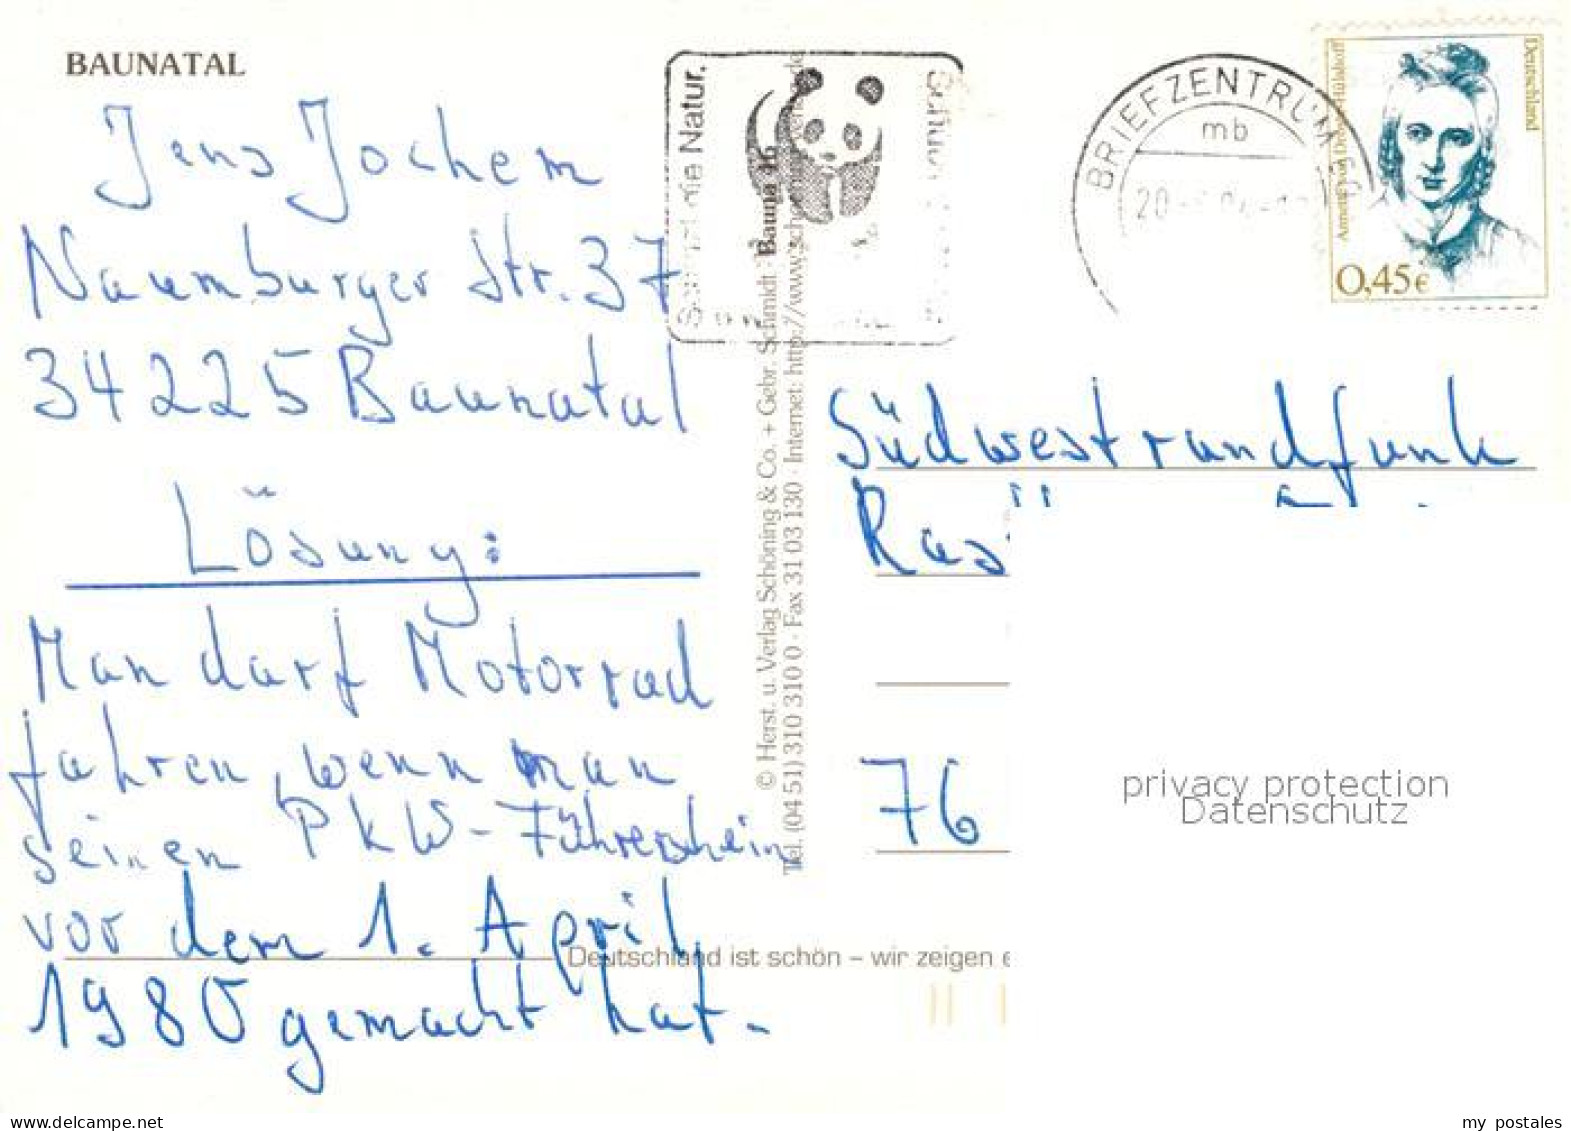 BAUNATAL
Jens Jochem
Naumburger Str. 37
34225 Baunatal
Lösung:
Man darf Motorrad
fahren, wenn man
seinen PKW-Führerschein
vor dem 1. April
1980 gemacht hat.
die Natur.
Bauna 46
© Herst. u. Verlag Schöning & Co. + Gebr. Schmidt
Tel. (04 51) 310 310 0 · Fax 31 03 130 · Internet: http://www.
Deutschland ist schön – wir zeigen
BRIEFZENTRUM
mb
Annette von
Hülshoff
Deutschland
0,45€
Südwestrandfunk
76
privacy protection
Datenschutz
my postales